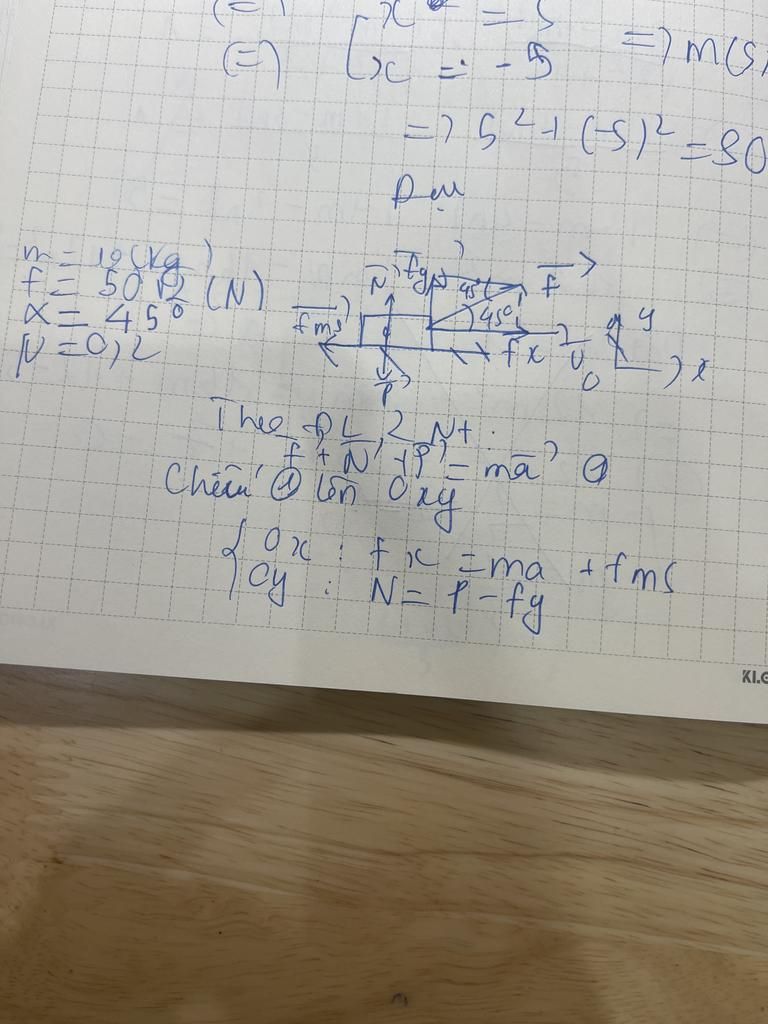 (=) x = 5
(=) [x = -5 => m(5
=> 5² + (-5)² = 50
m = 10 (kg)
f = 50√2 (N)
α = 45°
μ = 0,2
N fy 45° f
fms 45° fx v
P
y
O x
Theo ĐL 2 Nt :
f + N + P = ma ①
Chiếu ① lên Oxy
{ Ox : fx = ma + fms
Oy : N = P - fy
KI.G